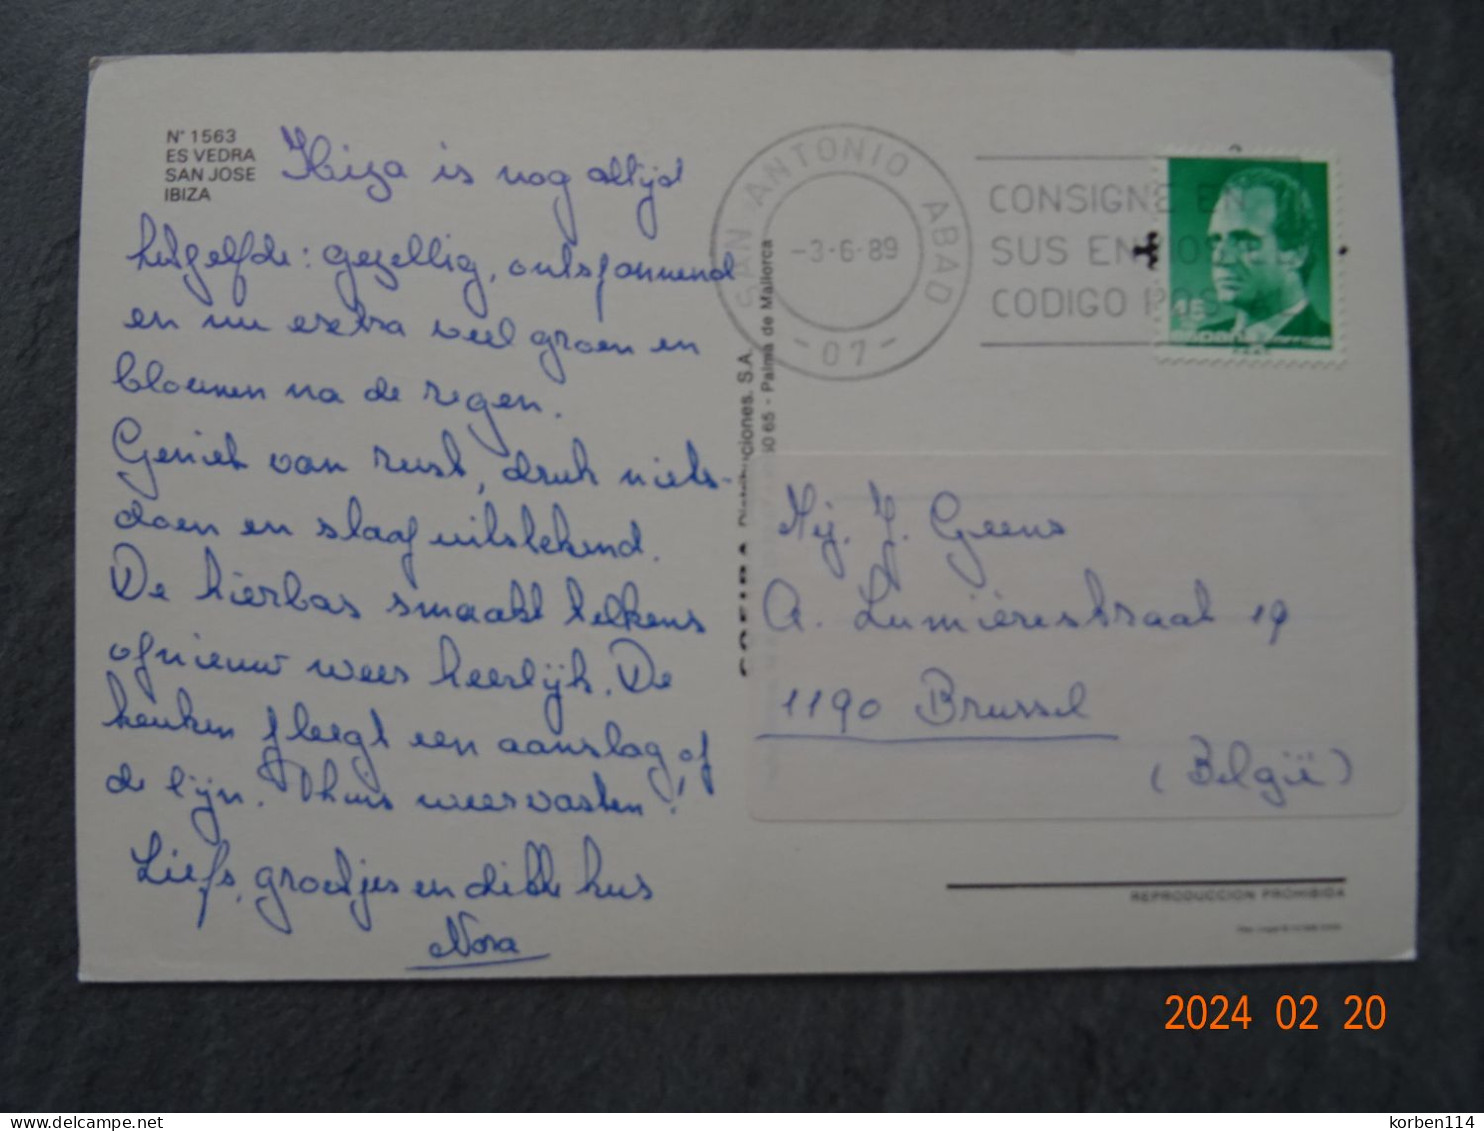 N° 1563
ES VEDRA
SAN JOSE
IBIZA
Ibiza is nog altijd
hetzelfde: gezellig, ontspannend
en nu extra veel groen en
bloemen na de regen.
Geniet van rust, druk niets-
doen en slaap uitstekend.
De hierbas smaakt telkens
opnieuw weer heerlijk. De
keuken pleegt een aanslag op
de lijn. Thuis weer vasten!
Liefs, groetjes en dikke kus
Nora
SAN ANTONIO ABAD
-3-6-89
-07-
CONSIGNE EN
SUS EN
CODIGO POS
S.A.
65 - Palma de Mallorca
Mej. J. Geens
A. Lumièrestraat 19
1190 Brussel
(België)
REPRODUCCION PROHIBIDA
2024 02 20
delcampe.net
korben114